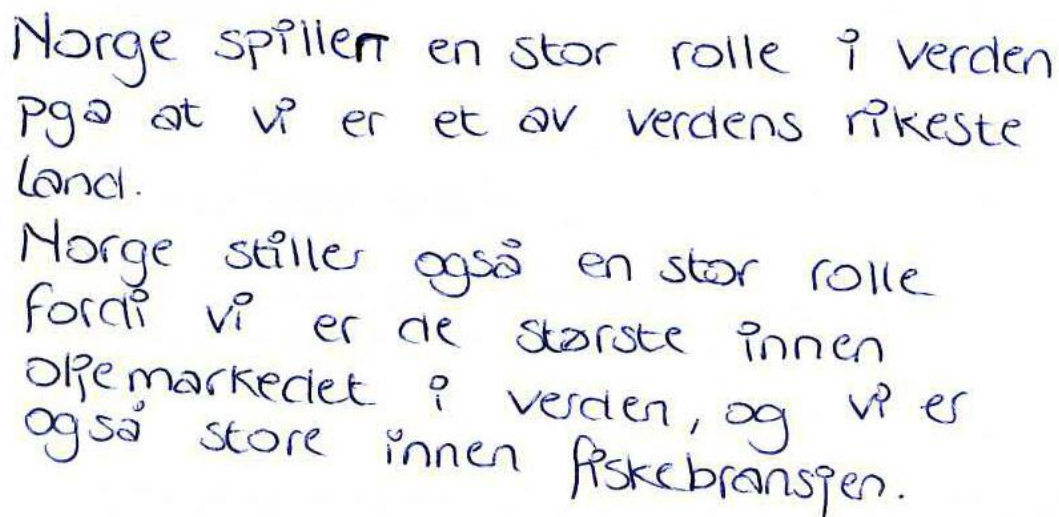 Norge spiller en stor rolle i verden
pga at vi er et av verdens rikeste
land.
Norge stiller også en stor rolle
fordi vi er de største innen
oljemarkedet i verden, og vi er
også store innen fiskebransjen.